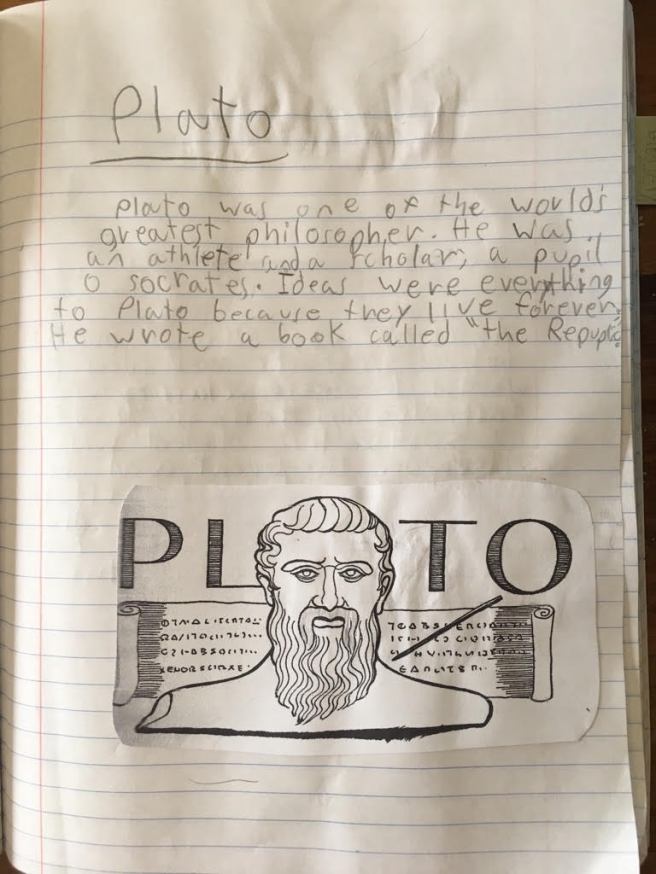 Plato
Plato was one of the world's
greatest philosopher. He was
an athlete and a scholar, a pupil
o socrates. Ideas were everything
to Plato because they live forever.
He wrote a book called "the
PL TO